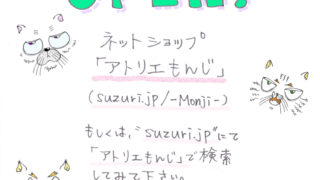 OPEN!
ネットショップ
「アトリエもんじ」
(suzuri.jp/-Monji-)
もしくは、"suzuri.jp"にて
「アトリエもんじ」で検索
してみて下さい。